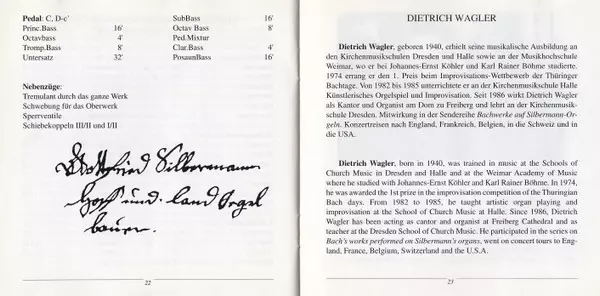 Pedal: C, D-c'
Princ.Bass 16'
Octavbass 4'
Tromp.Bass 8'
Untersatz 32'
SubBass 16'
Octav Bass 8'
Ped.Mixtur
Clar.Bass 4'
PosaunBass 16'
Nebenzüge:
Tremulant durch das ganze Werk
Schwebung für das Oberwerk
Sperrventile
Schiebekoppeln III/II und I/II
Gottfried Silbermann
Hoff und. land Orgel
bauer.
22
DIETRICH WAGLER
Dietrich Wagler, geboren 1940, erhielt seine musikalische Ausbildung an
den Kirchenmusikschulen Dresden und Halle sowie an der Musikhochschule
Weimar, wo er bei Johannes-Ernst Köhler und Karl Rainer Böhme studierte.
1974 errang er den 1. Preis beim Improvisations-Wettbewerb der Thüringer
Bachtage. Von 1982 bis 1985 unterrichtete er an der Kirchenmusikschule Halle
Künstlerisches Orgelspiel und Improvisation. Seit 1986 wirkt Dietrich Wagler
als Kantor und Organist am Dom zu Freiberg und lehrt an der Kirchenmusik-
schule Dresden. Mitwirkung in der Sendereihe Bachwerke auf Silbermann-Or-
geln. Konzertreisen nach England, Frankreich, Belgien, in die Schweiz und in
die USA.
Dietrich Wagler, born in 1940, was trained in music at the Schools of
Church Music in Dresden and Halle and at the Weimar Academy of Music
where he studied with Johannes-Ernst Köhler and Karl Rainer Böhme. In 1974,
he was awarded the 1st prize in the improvisation competition of the Thuringian
Bach days. From 1982 to 1985, he taught artistic organ playing and
improvisation at the School of Church Music at Halle. Since 1986, Dietrich
Wagler has been acting as cantor and organist at Freiberg Cathedral and as
teacher at the Dresden School of Church Music. He participated in the series on
Bach's works performed on Silbermann's organs, went on concert tours to Eng-
land, France, Belgium, Switzerland and the U.S.A.
23